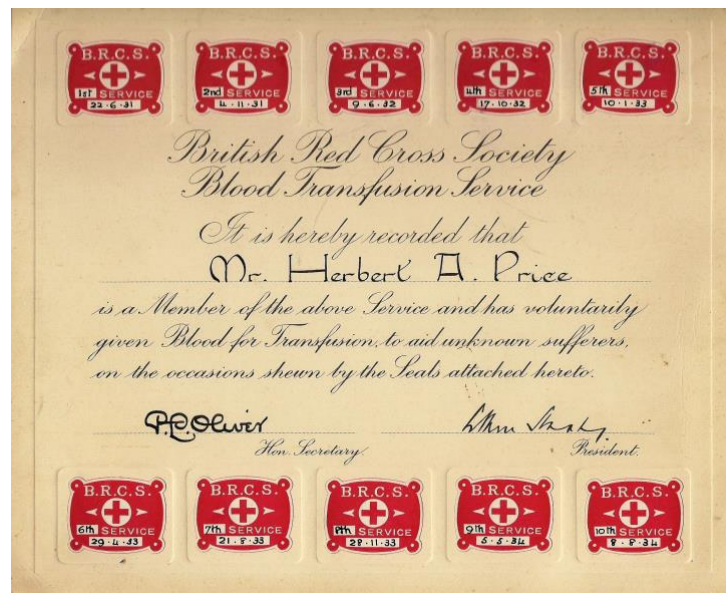 B.R.C.S.
1st SERVICE
22·6·31
B.R.C.S.
2nd SERVICE
4·11·31
B.R.C.S.
3rd SERVICE
9·6·32
B.R.C.S.
4th SERVICE
17·10·32
B.R.C.S.
5th SERVICE
10·1·33
British Red Cross Society
Blood Transfusion Service
It is hereby recorded that
Mr. Herbert A. Price
is a Member of the above Service and has voluntarily
given Blood for Transfusion, to aid unknown sufferers,
on the occasions shewn by the Seals attached hereto.
P.L. Oliver
Hon. Secretary.
President.
B.R.C.S.
6th SERVICE
29·4·33
B.R.C.S.
7th SERVICE
21·8·33
B.R.C.S.
8th SERVICE
28·11·33
B.R.C.S.
9th SERVICE
5·5·34
B.R.C.S.
10th SERVICE
8·8·34